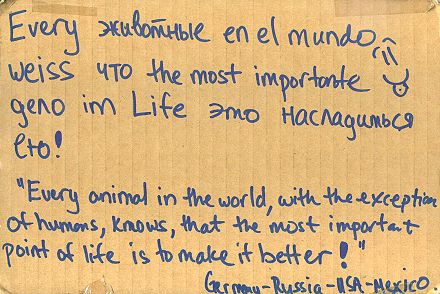 Every животные en el mundo
weiss что the most importante
дело im Life это насладиться
Его!
"Every animal in the world, with the exception
of humans, knows, that the most important
point of life is to make it better!"
Germany-Russia-USA-Mexico